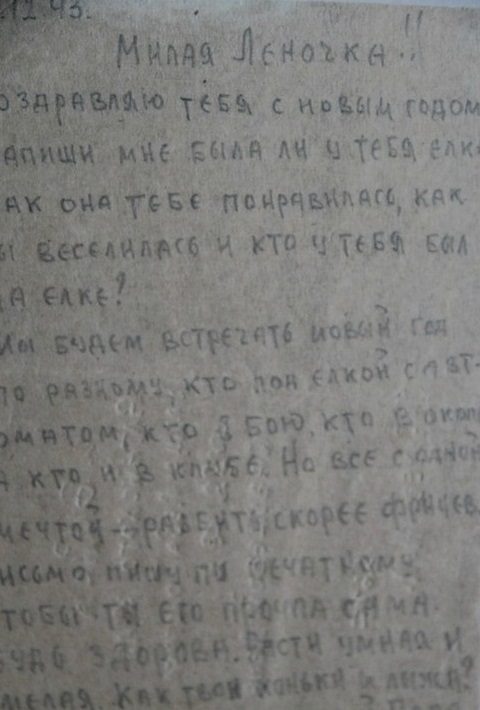 .12.43.
Милая Леночка!!
оздравляю тебя с новым годом
апиши мне была ли у тебя елк
ак она тебе понравилась, как
ы веселилась и кто у тебя был
а елке?
мы будем встречать новый год
по разному, кто под елкой с авт-
оматом, кто в бою, кто в окоп
а кто и в клубе. Но все с одной
мечтой – разбить скорее фрицев.
исьмо пишу по печатному,
чтобы ты его прочла сама.
Будь здорова. Расти умная и
мелая. Как твои коньки и лыжи?